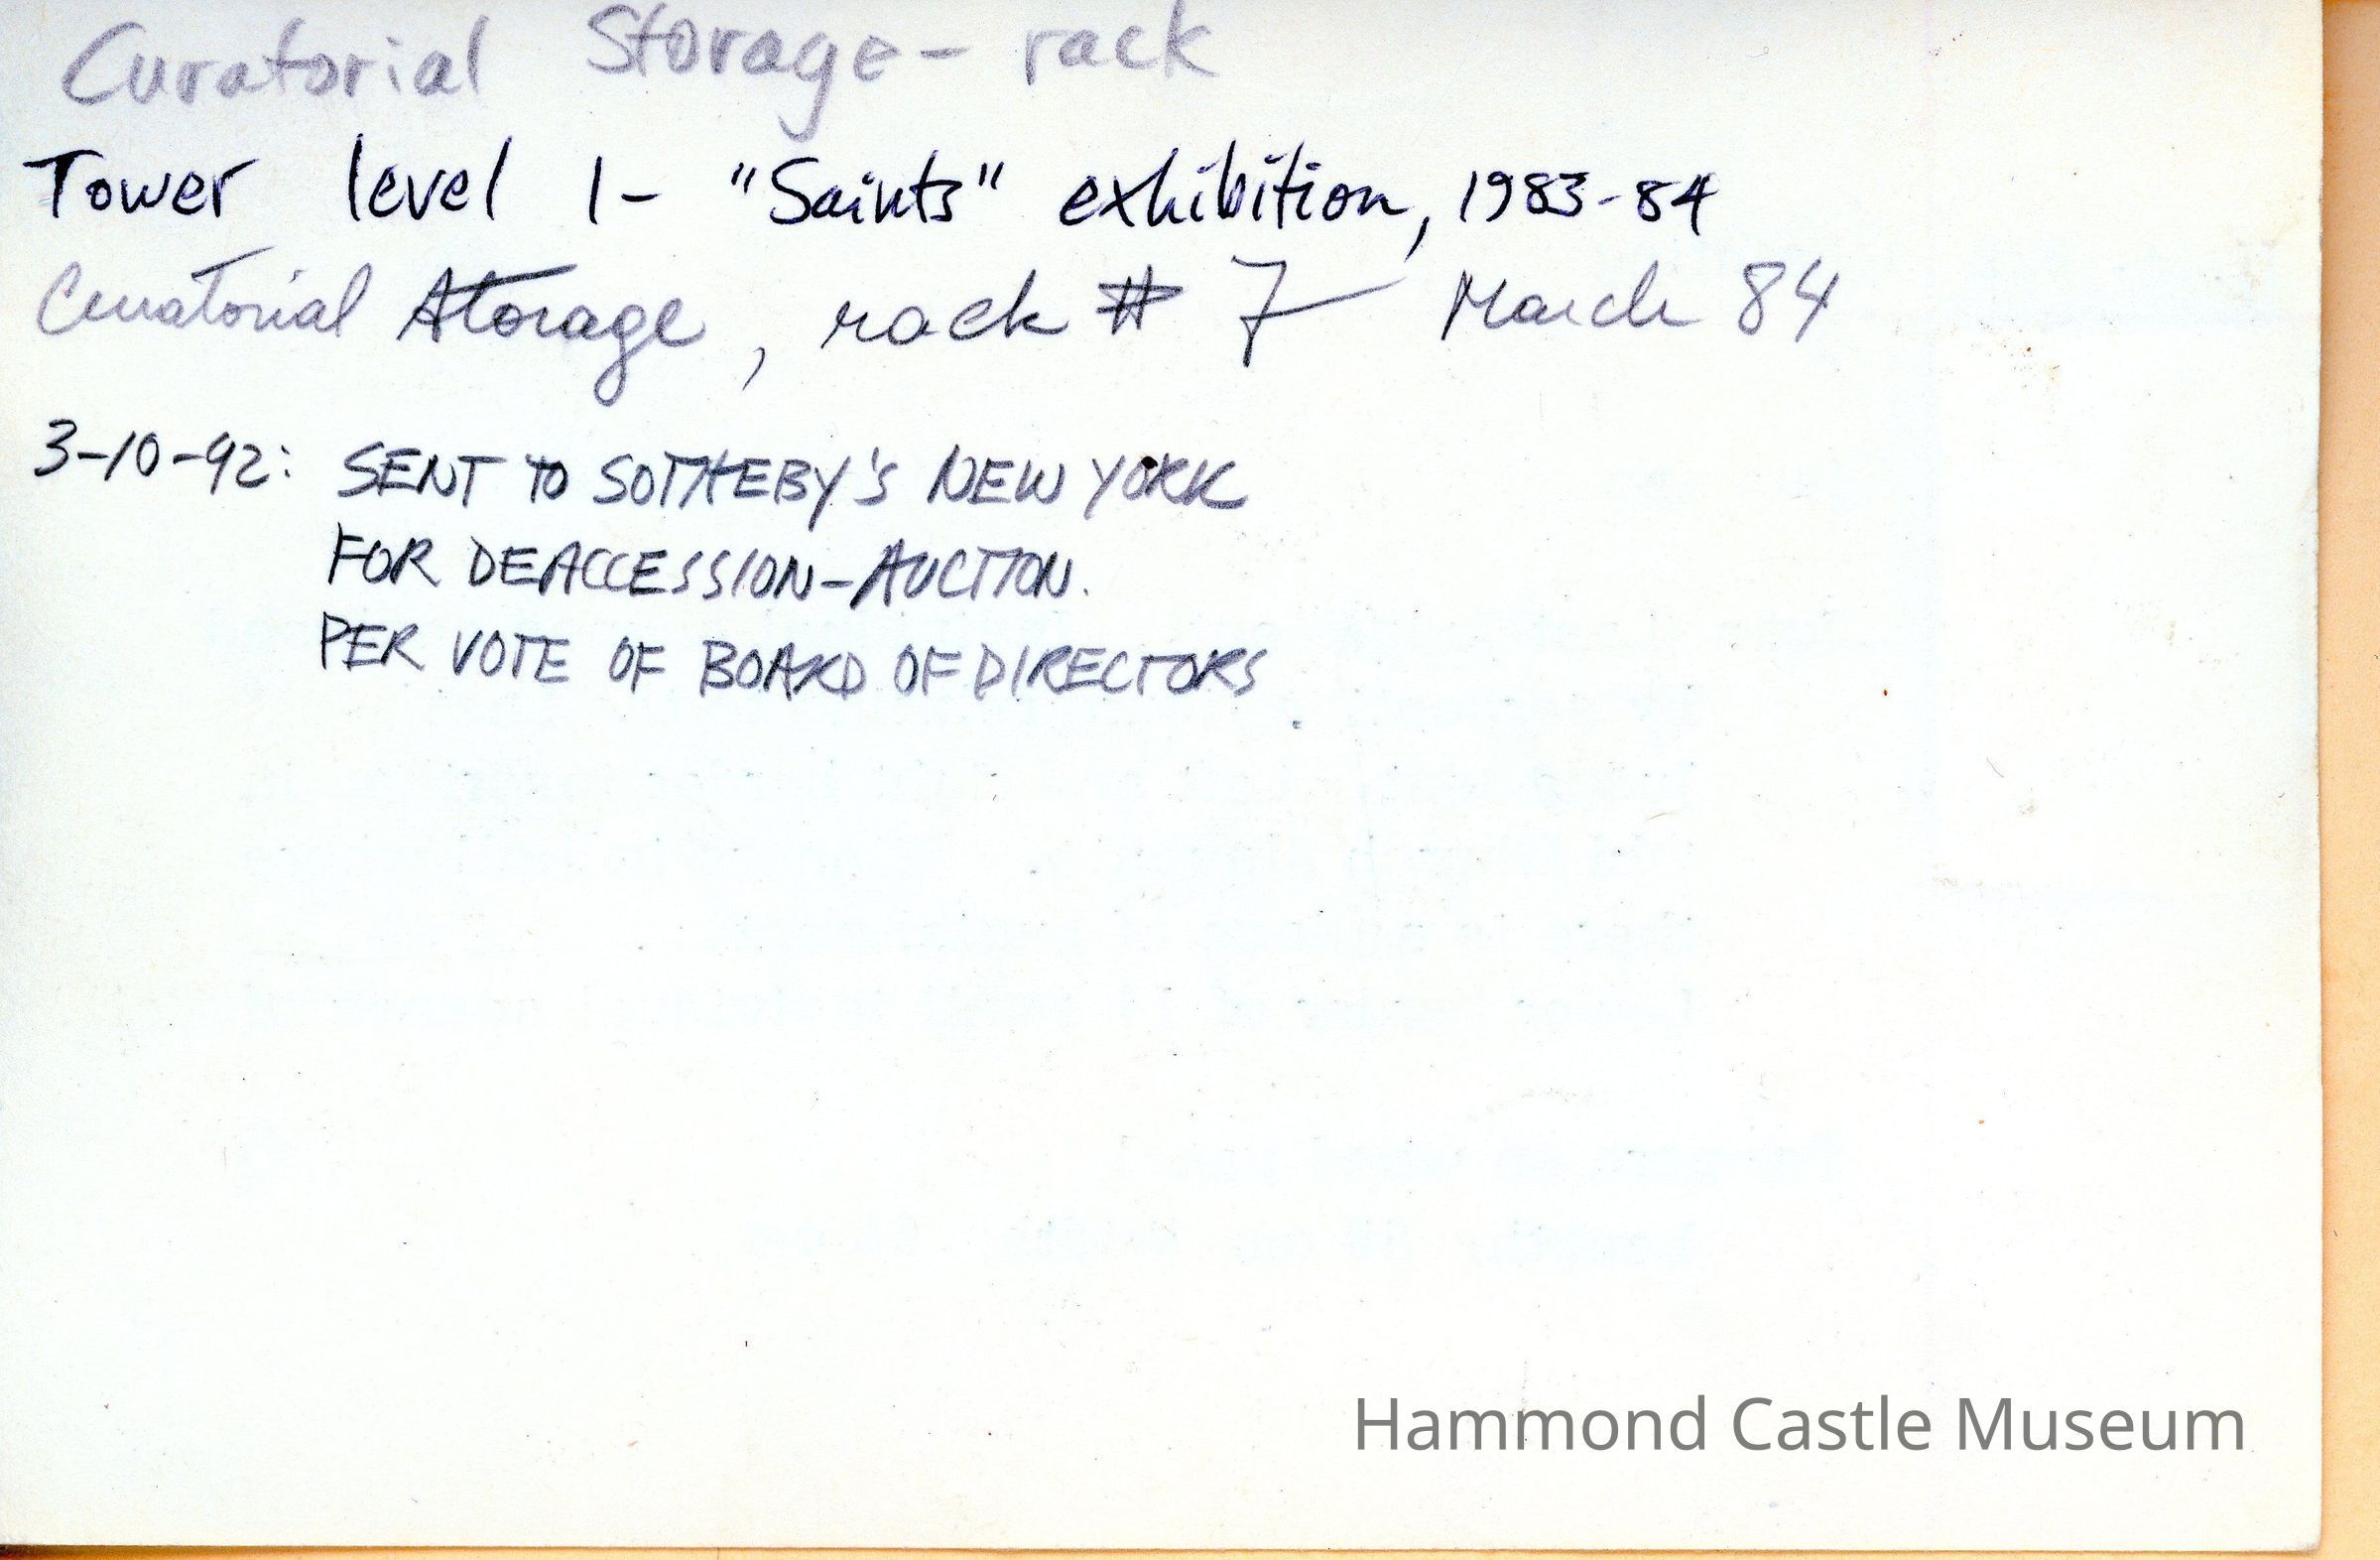 Curatorial Storage - rack
Tower level 1 - "Saints" exhibition, 1983-84
Curatorial Storage, rack # 7 March 84
3-10-92: SENT TO SOTHEBY'S NEW YORK
FOR DEACCESSION-AUCTION.
PER VOTE OF BOARD OF DIRECTORS
Hammond Castle Museum